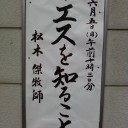 六月五日(日)午前十時三〇分
エスを知ること
松木 傑牧師